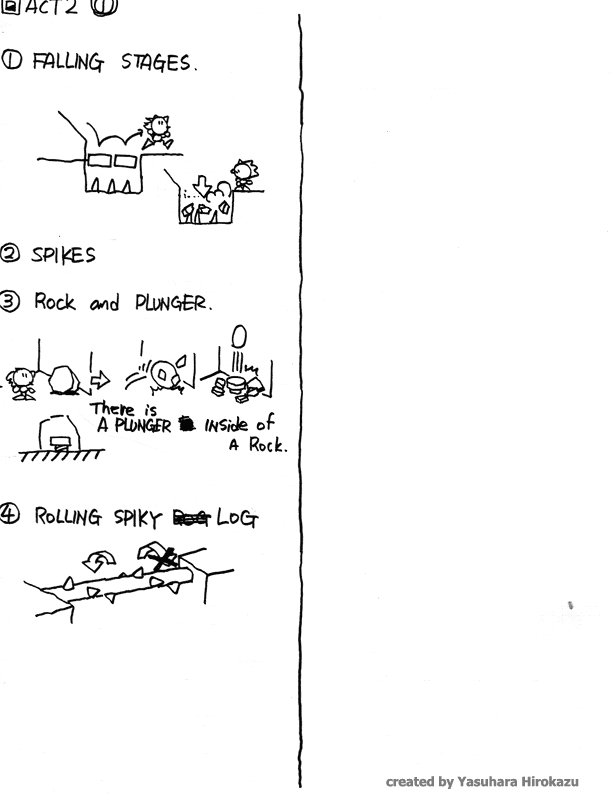 ACT2 ①
① FALLING STAGES.
② SPIKES
③ Rock and PLUNGER.
There is
A PLUNGER Inside of
A Rock.
④ ROLLING SPIKY LOG
created by Yasuhara Hirokazu